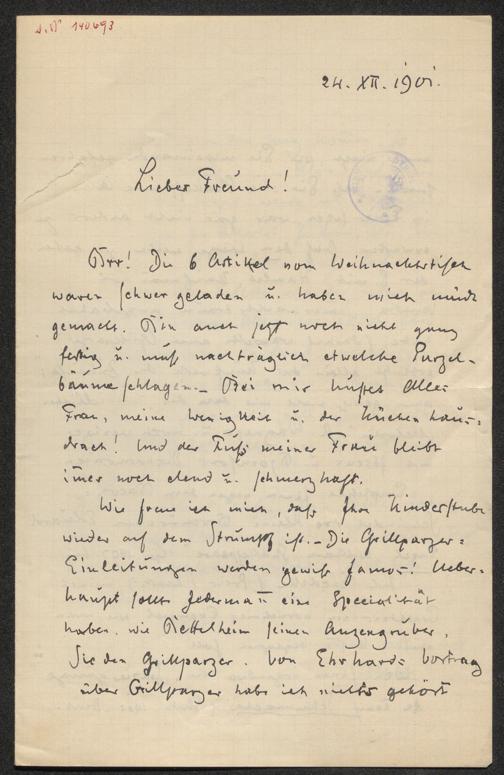 J. N° 140.693
24. XII. 1901.
Lieber Freund!
Brr! Die 6 Artikel vom Weihnachtstisch
waren schwer geladen u. haben mich müde
gemacht. Bin auch jetzt noch nicht ganz
fertig u. muß nachträglich etwelche Purzel-
bäume schlagen. – Bei mir hustet Alles
Frau, meine Wenigkeit u. der Küchenhaus-
drach! Und der Fuß meiner Frau bleibt
im̄er noch elend u. schmerzhaft.
Wie freue ich mich, daß Ihre Kinderstube
wieder auf dem Strumpf ist. – Die Grillparzer-
Einleitungen werden gewiß famos! Ueber-
haupt sollte Jederman̄ eine Specialität
haben. wie Bettelheim seinen Anzengruber,
Sie den Grillparzer. Von Ehrhards Vortrag
über Grillparzer habe ich nichts gehört